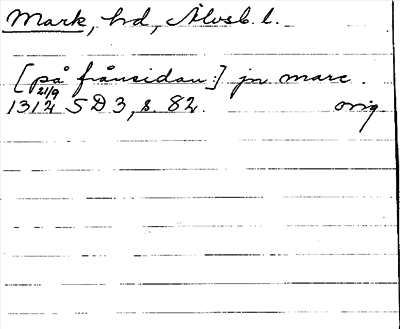 Mark, hd, Älvsb. l.
[på frånsidan:] jn marc.
21/9
1312 SD 3, s. 82. orig